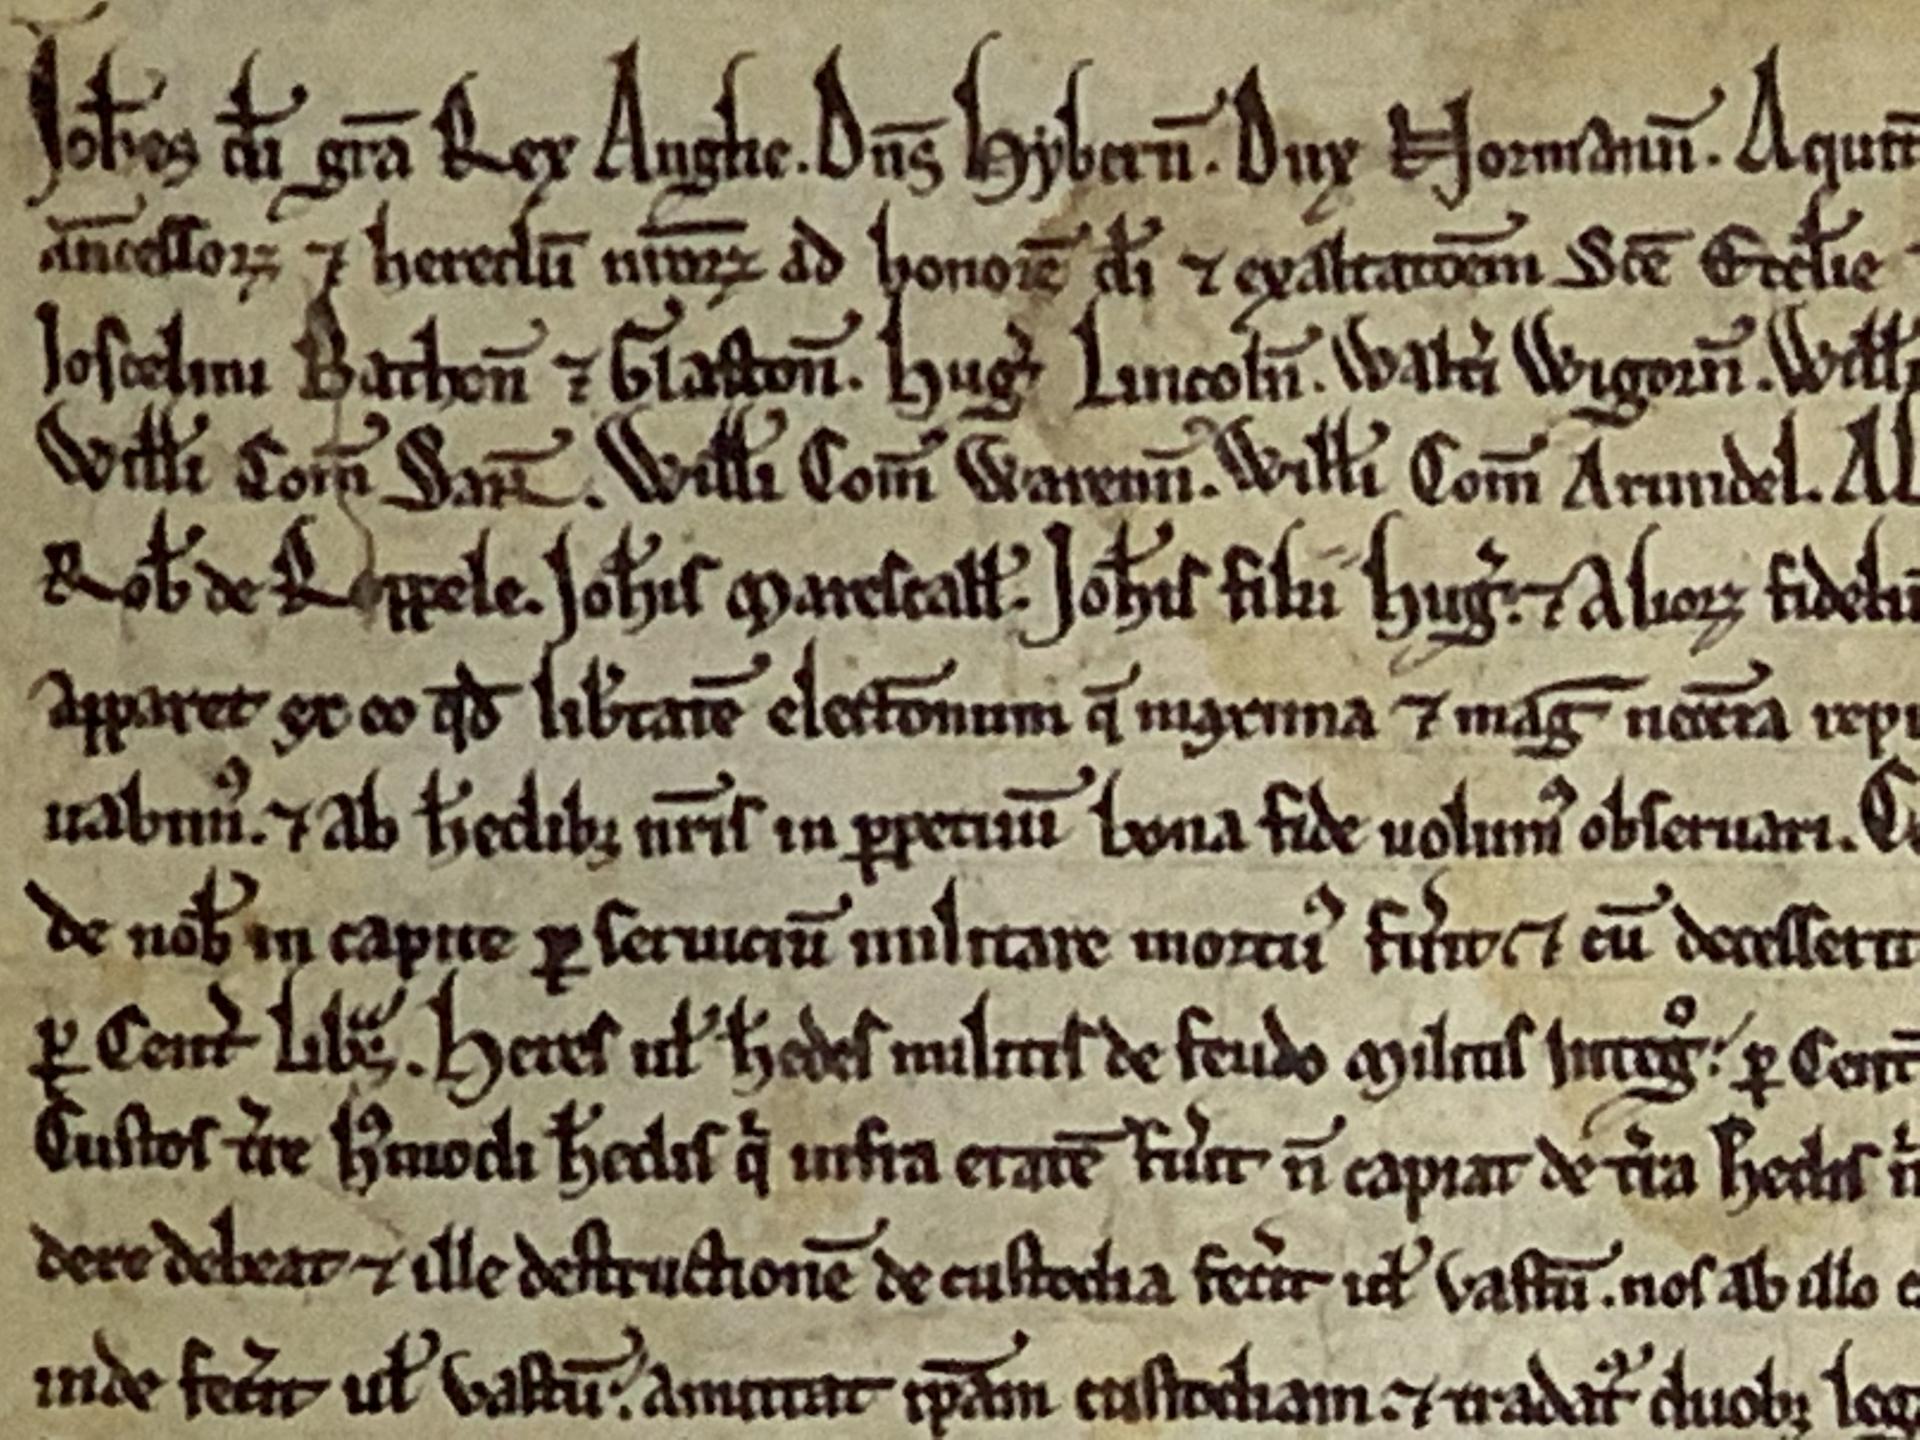 Joh̄es d̄i gr̄a Rex Anglie. Dn̄s Hybern̄. Dux Normann̄. Aquit̄
an̄cessorꝝ ⁊ heredū nr̄orꝝ ad honorē d̄i ⁊ exaltatōem Sc̄e Eccl̄ie
Joscelini Bathon̄ ⁊ Glaston̄. Hug̉ Lincoln̄. Walt̉i Wigorn̄. Will̄i
Will̄i Com̄ Sarr̄. Will̄i Com̄ Warenn̄. Will̄i Com̄ Arundel. Al
Rob̄ de Roppele. Joh̄is Marescall̄. Joh̄is filii Hug̉. ⁊ Aliorꝝ fideliū
apparet ex eo qd̄ lib̉tatē electōnum q̄ maxima ⁊ maḡ necc̄ia repu
uabimꝰ. ⁊ ab h̉edibꝫ nr̄is in ꝑpetuū bona fide uolumꝰ obseruari. Co
de nob̄ in capite ꝑ seruiciū militare mortuꝰ fủit ⁊ cū decesserit
ꝑ Cent̄ libꝫ. Heres ul̄ h̉edes militis de feudo Militis Integͦ. ꝑ Cent̄
Custos t̉re hꝰmodi h̉edis q̄ infra etatē fủit n̄ capiat de t̉ra h̉edis n̉
dere debeat ⁊ ille destructionē de custodia fec̉it ul̄ vastū. nos ab illo e
inde fec̉it ul̄ vastū. amittat ip̄am custodiam. ⁊ tradat᷑ duobꝫ lega